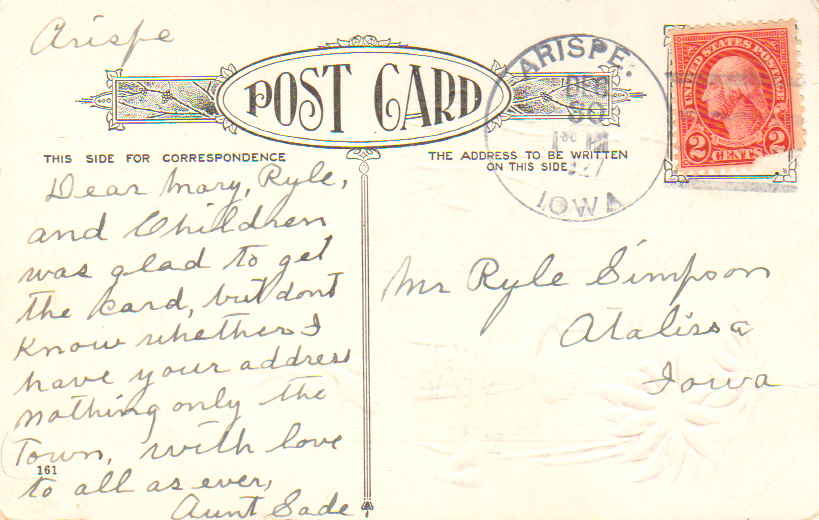 Arispe
POST CARD
THIS SIDE FOR CORRESPONDENCE
THE ADDRESS TO BE WRITTEN
ON THIS SIDE
ARISPE.
DEC
30
1927
IOWA
UNITED STATES POSTAGE
2 CENTS 2
Dear Mary, Ryle,
and Children
was glad to get
the card, but dont
know whether I
have your address
nothing only the
Town, with love
to all as ever,
Aunt Sade
161
Mr Ryle Simpson
Atalissa
Iowa